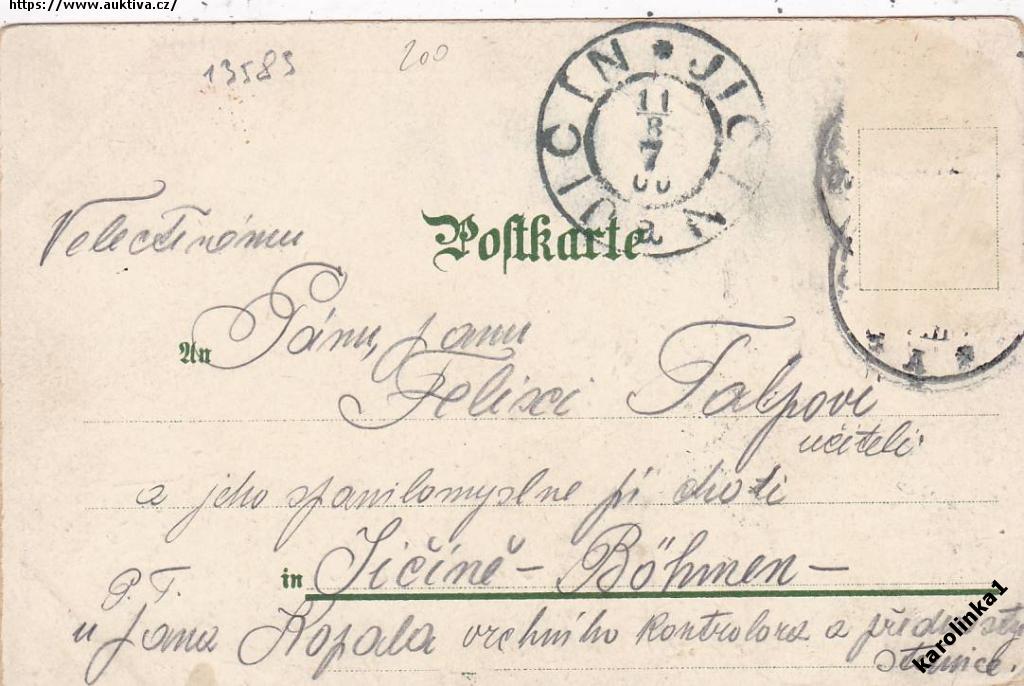 https://www.auktiva.cz/
13583
200
JICIN * JICIN
11
8
7
00
a
Velectěnému
Postkarte
An Pánu, panu
Felixi Talpovi
učiteli
a jeho spanilomyslné pí choti
in Jičíně - Böhmen -
P. T.
u pana Kopala vrchního kontrolora a přednosty
stanice.
karolinka1